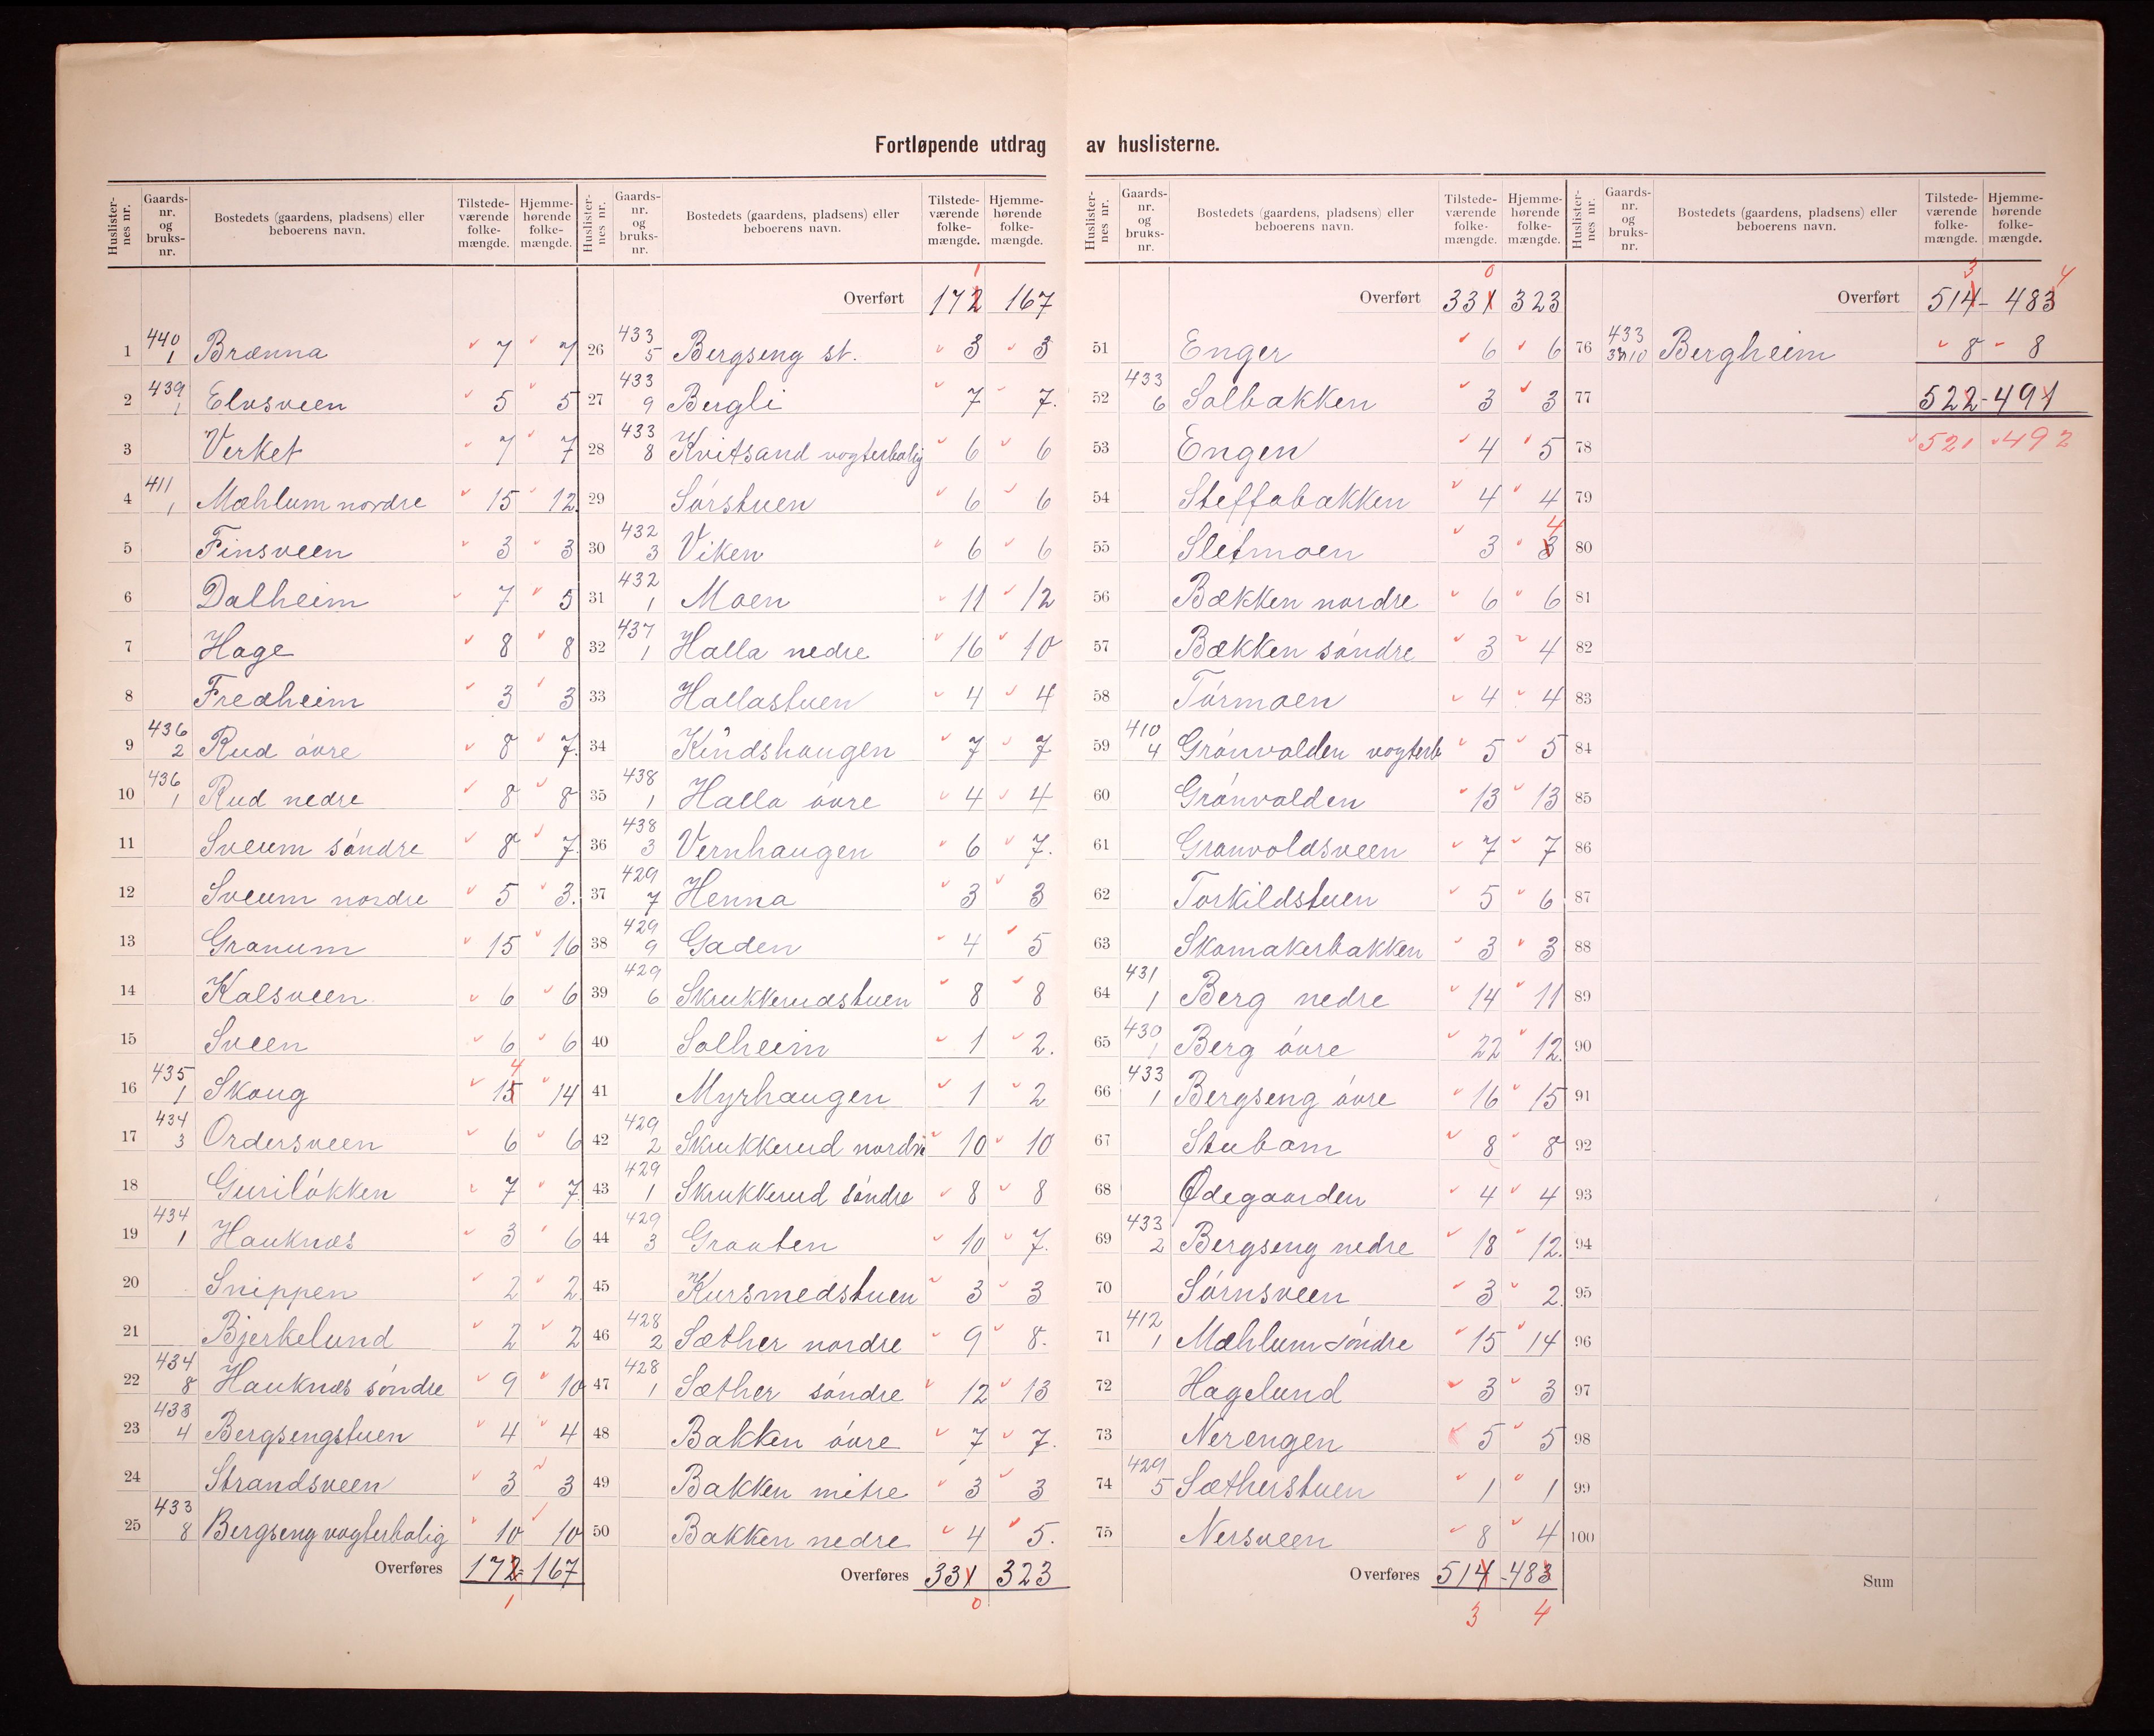 Fortløpende utdrag av huslisterne.
Huslister-nes nr. Gaards-nr. og bruks-nr. Bostedets (gaardens, pladsens) eller beboerens navn. Tilstede-værende folke-mængde. Hjemme-hørende folke-mængde.
1 440 1 Brænna 7 7
2 439 1 Elvsveen 5 5
3 Verket 7 7
4 411 1 Mæhlum nordre 15 12
5 Finsveen 3 3
6 Dalheim 7 5
7 Hage 8 8
8 Fredheim 3 3
9 436 2 Rud óvre 8 7.
10 436 1 Rud nedre 8 8
11 Sveum sóndre 8 7.
12 Sveum nordre 5 3.
13 Granum 15 16
14 Kalsveen 6 6
15 Sveen 6 6
16 435 1 Skoug 15 4 14
17 434 3 Ordersveen 6 6
18 Gurilókken 7 7
19 434 1 Hauknæs 3 6
20 Snippen 2 2
21 Bjerkelund 2 2
22 434 8 Hauknæs sóndre 9 10
23 433 4 Bergsengstuen 4 4
24 Strandsveen 3 3
25 433 8 Bergseng vogterbolig 10 10
Overføres 172 - 167
1
Huslister-nes nr. Gaards-nr. og bruks-nr. Bostedets (gaardens, pladsens) eller beboerens navn. Tilstede-værende folke-mængde. Hjemme-hørende folke-mængde.
1
Overført 172 167
26 433 5 Bergseng st. 3 3
27 433 9 Bergli 7 7.
28 433 8 Kvitsand vogterbolig 6 6
29 Sórstuen 6 6
30 432 3 Viken 6 6
31 432 1 Moen 11 12
32 437 1 Halla nedre 16 10
33 Hallastuen 4 4
34 Kindshaugen 7 7
35 438 1 Halla óvre 4 4
36 438 3 Vernhaugen 6 7.
37 429 7 Henna 3 3
38 429 9 Gaden 4 5
39 429 6 Skrukkerudstuen 8 8
40 Solheim 1 2.
41 Myrhaugen 1 2
42 429 2 Skrukkerud nordre 10 10
43 429 1 Skrukkerud sóndre 8 8
44 429 3 Graaten 10 7.
45 Kursmedstuen 3 3
46 428 2 Sæther nordre 9 8.
47 428 1 Sæther sóndre 12 13
48 Bakken óvre 7 7.
49 Bakken mitre 3 3
50 Bakken nedre 4 5.
Overføres 331 323
0
Huslister-nes nr. Gaards-nr. og bruks-nr. Bostedets (gaardens, pladsens) eller beboerens navn. Tilstede-værende folke-mængde. Hjemme-hørende folke-mængde.
0
Overført 331 323
51 Enger 6 6
52 433 6 Solbakken 3 3
53 Engen 4 5
54 Steffabakken 4 4
55 Sletmoen 3 3 4
56 Bækken nordre 6 6
57 Bækken sóndre 3 4
58 Tórmoen 4 4
59 410 4 Grónvolden vogterb 5 5
60 Grónvolden 13 13
61 Gronvoldsveen 7 7
62 Torkildstuen 5 6
63 Skomakerbakken 3 3
64 431 1 Berg nedre 14 11
65 430 1 Berg óvre 22 12
66 433 1 Bergseng óvre 16 15
67 Stubom 8 8
68 Ødegaarden 4 4
69 433 2 Bergseng nedre 18 12.
70 Sórnsveen 3 2
71 412 1 Mæhlum sóndre 15 14
72 Hagelund 3 3
73 Nerengen 5 5
74 429 5 Sætherstuen 1 1
75 Nersveen 8 4
Overføres 514 - 483
3 4
Huslister-nes nr. Gaards-nr. og bruks-nr. Bostedets (gaardens, pladsens) eller beboerens navn. Tilstede-værende folke-mængde. Hjemme-hørende folke-mængde.
3 4
Overført 514 - 483
76 433 10 Bergheim 8 8
77 522 - 491
78 521 492
79
80
81
82
83
84
85
86
87
88
89
90
91
92
93
94
95
96
97
98
99
100
Sum